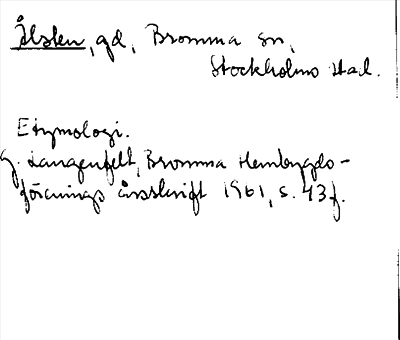 Ålsten, gd, Bromma sn,
Stockholms stad.
Etymologi.
G. Langenfelt, Bromma Hembygds-
förenings årsskrift 1961, s. 43f.